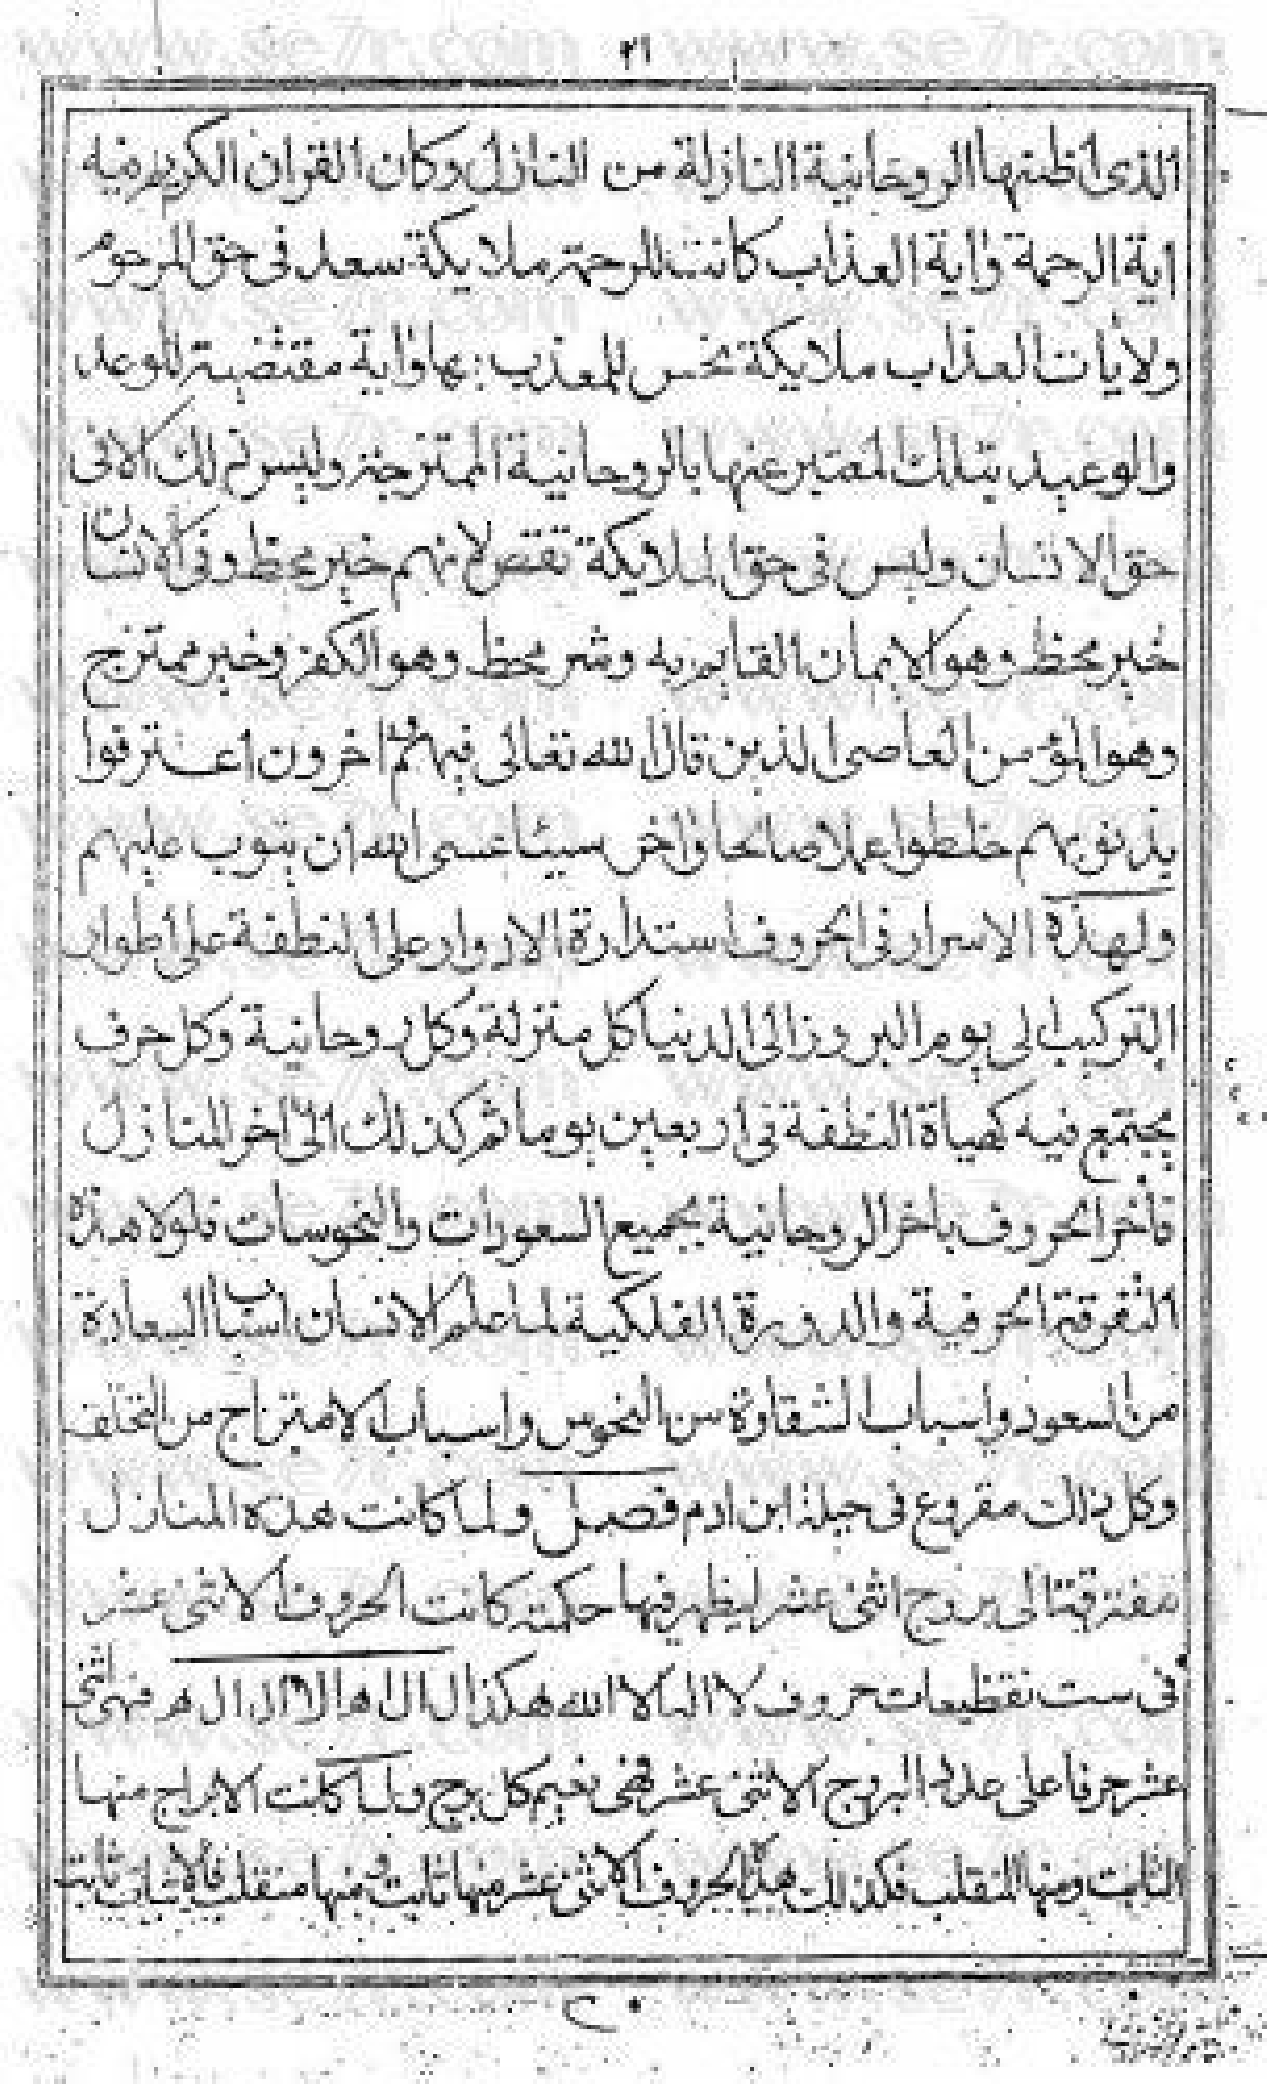 ٢١
الذى اظنتها الروحانية النازلة من النازل وكان القران الكريم فيه
اية الرحمة واية العذاب كانت للرحمة ملايكة سعد فى حق المرحوم
ولايات العذاب ملايكة نحس للمعذب بها واية مقتضية للوعد
والوعيد بتلك المعتبر عنها بالروحانية الممتزجة وليس ثم لك الا فى
حق الانسان وليس فى حق الملايكة نقص لانهم خير محظ وفى الانسان
خير محظ وهو الايمان القايم به وشر محظ وهو الكفر وخير ممتزج
وهو المؤمن العاصى الذين قال الله تعالى فيهم واخرون اعترفوا
بذنوبهم خلطوا عملا صالحا واخر سيئا عسى الله ان يتوب عليهم
ولهذه الاسرار فى الحروف استدارة الادوار على النطفة على اطوار
التركيب الى يوم البروز الى الدنيا كل منزلة وكل روحانية وكل حرف
يجتمع فيه كمياة النطفة فى اربعين يوما ثم كذلك الى اخر المنازل
فاخر الحروف باخر الروحانية بجميع السعودات والنحوسات فلولا هذه
التفرقة الحرفية والدورة الفلكية لما علم الانسان اسباب السعادة
من السعود واسباب الشقاوة من النحوس واسباب الامتزاج من التخلف
وكل ذلك مقروع فى جبلة ابن ادم فصل ولما كانت هذه المنازل
مفترقة الى بروج اثنى عشر ليظهر فيها حكمته كانت الحروف الاثنى عشر
فى ست تقطيعات حروف لا اله الا الله هكذا ال ال اه ال ا ال ال ه فهى اثنى
عشر حرفا على عدد البروج الاثنى عشر فهى تعم كل برج ولما كانت الابراج منها
الثابت ومنها المنقلب فكذلك هذه الحروف الاثنى عشر منها ثابت ومنها منقلب فالاثبات ثابت